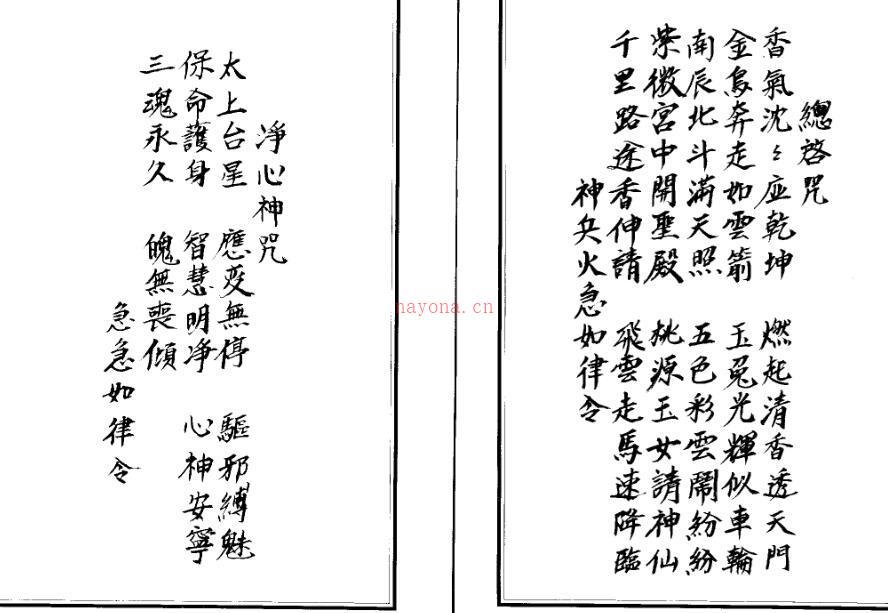 總啓咒
香氣沈〻应乾坤 燃起清香透天門
金烏奔走如雲箭 玉兔光輝似車輪
南辰北斗滿天照 五色彩雲鬧紛紛
紫微宮中開聖殿 桃源玉女請神仙
千里路途香伸請 飛雲走馬速降臨
神兵火急如律令
净心神咒
太上台星 應变無停 驅邪縛魅
保命護身 智慧明净 心神安寧
三魂永久 魄無喪傾
急急如律令
nayona.cn